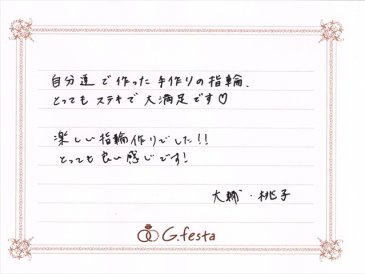 自分達で作った手作りの指輪、
とってもステキで大満足です♡
楽しい指輪作りでした!!
とっても良い感じです!
大輔・桃子
G.festa